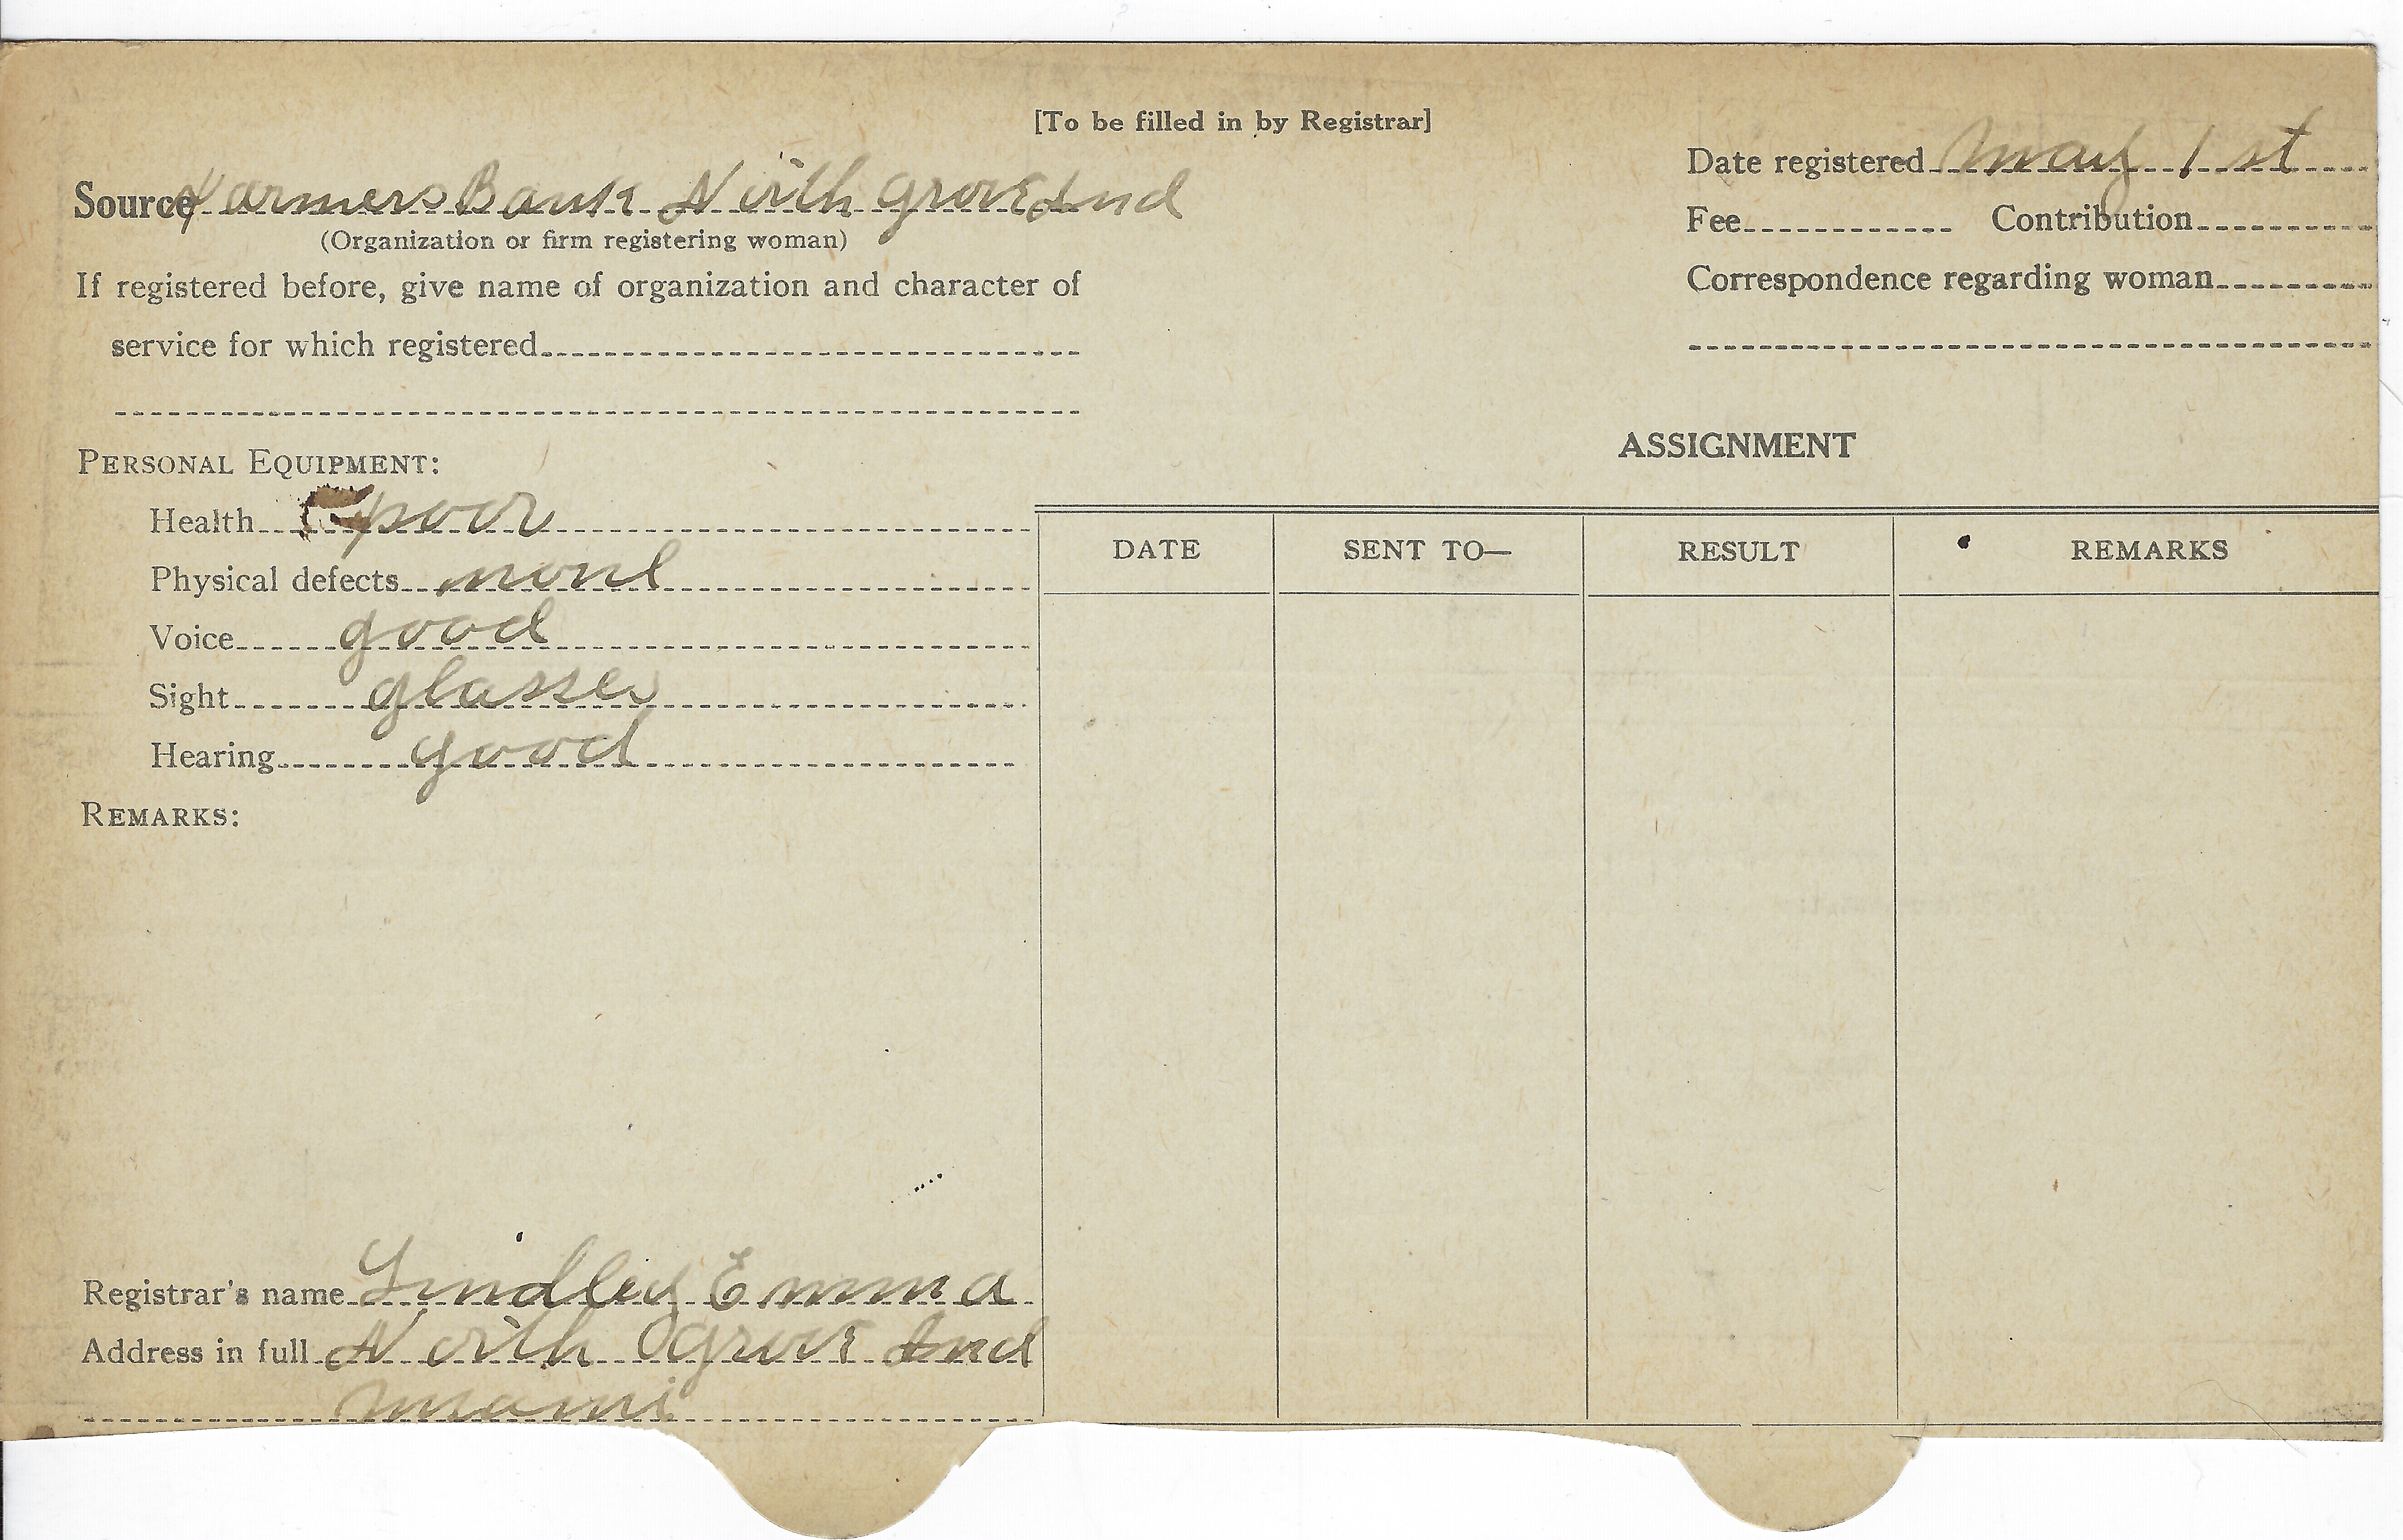 [To be filled in by Registrar]
Source Farmers Bank North Grove Ind
(Organization or firm registering woman)
If registered before, give name of organization and character of
service for which registered
Date registered May 1st
Fee Contribution
Correspondence regarding woman
PERSONAL EQUIPMENT:
Health poor
Physical defects none
Voice good
Sight glasses
Hearing good
REMARKS:
ASSIGNMENT
DATE SENT TO— RESULT REMARKS
Registrar's name Lindley Emma
Address in full North Grove Ind
Miami